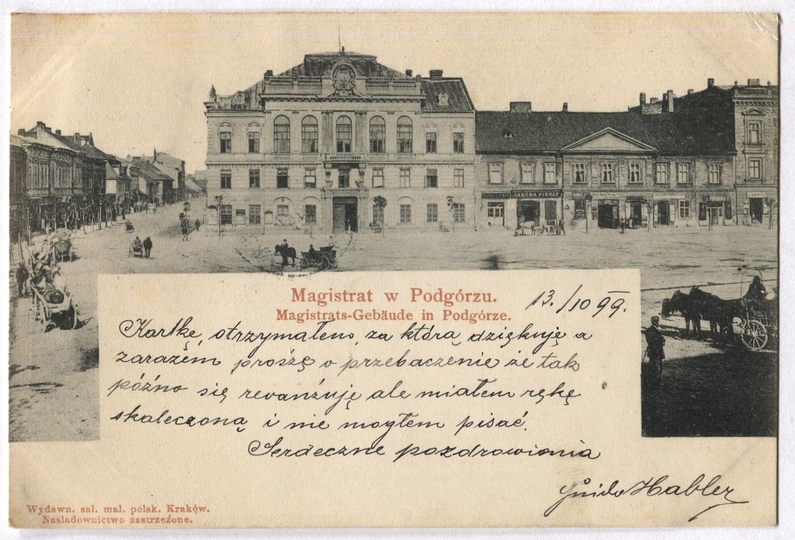 JAKÓBA PIRELY
Magistrat w Podgórzu.
Magistrats-Gebäude in Podgórze.
13./10 99.
Kartkę, otrzymałem, za którą dziękuję a
zarazem proszę o przebaczenie że tak
późno się revanżuję ale miałem rękę
skaleczoną i nie mogłem pisać.
Serdeczne pozdrowienia
Guido Habler
Wydawn. sal. mal. polsk. Kraków.
Naśladownictwo zastrzeżone.